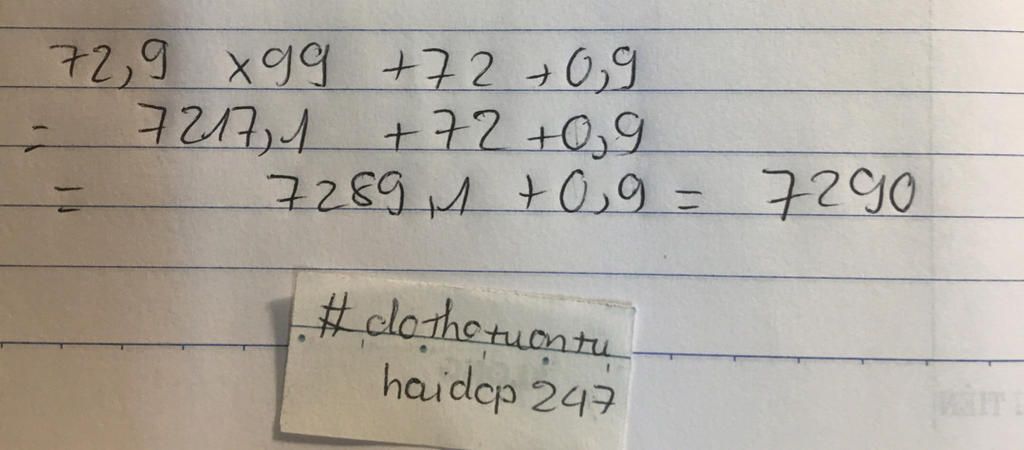 72,9 x 99 + 72 + 0,9
= 7217,1 + 72 + 0,9
= 7289,1 + 0,9 = 7290
haidcp 247